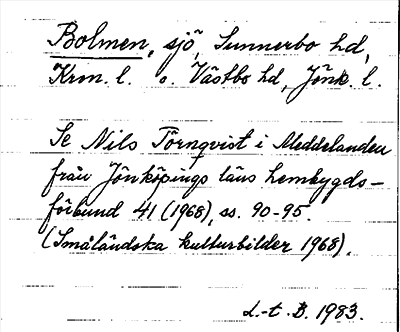 Bolmen, sjö, Sunnerbo hd,
Kron. l. o. Västbo hd, Jönk. l.
Se Nils Törnqvist i Meddelanden
från Jönköpings läns hembygds-
förbund 41 (1968), ss. 90-95.
(Småländska kulturbilder 1968).
L-t. B. 1983.